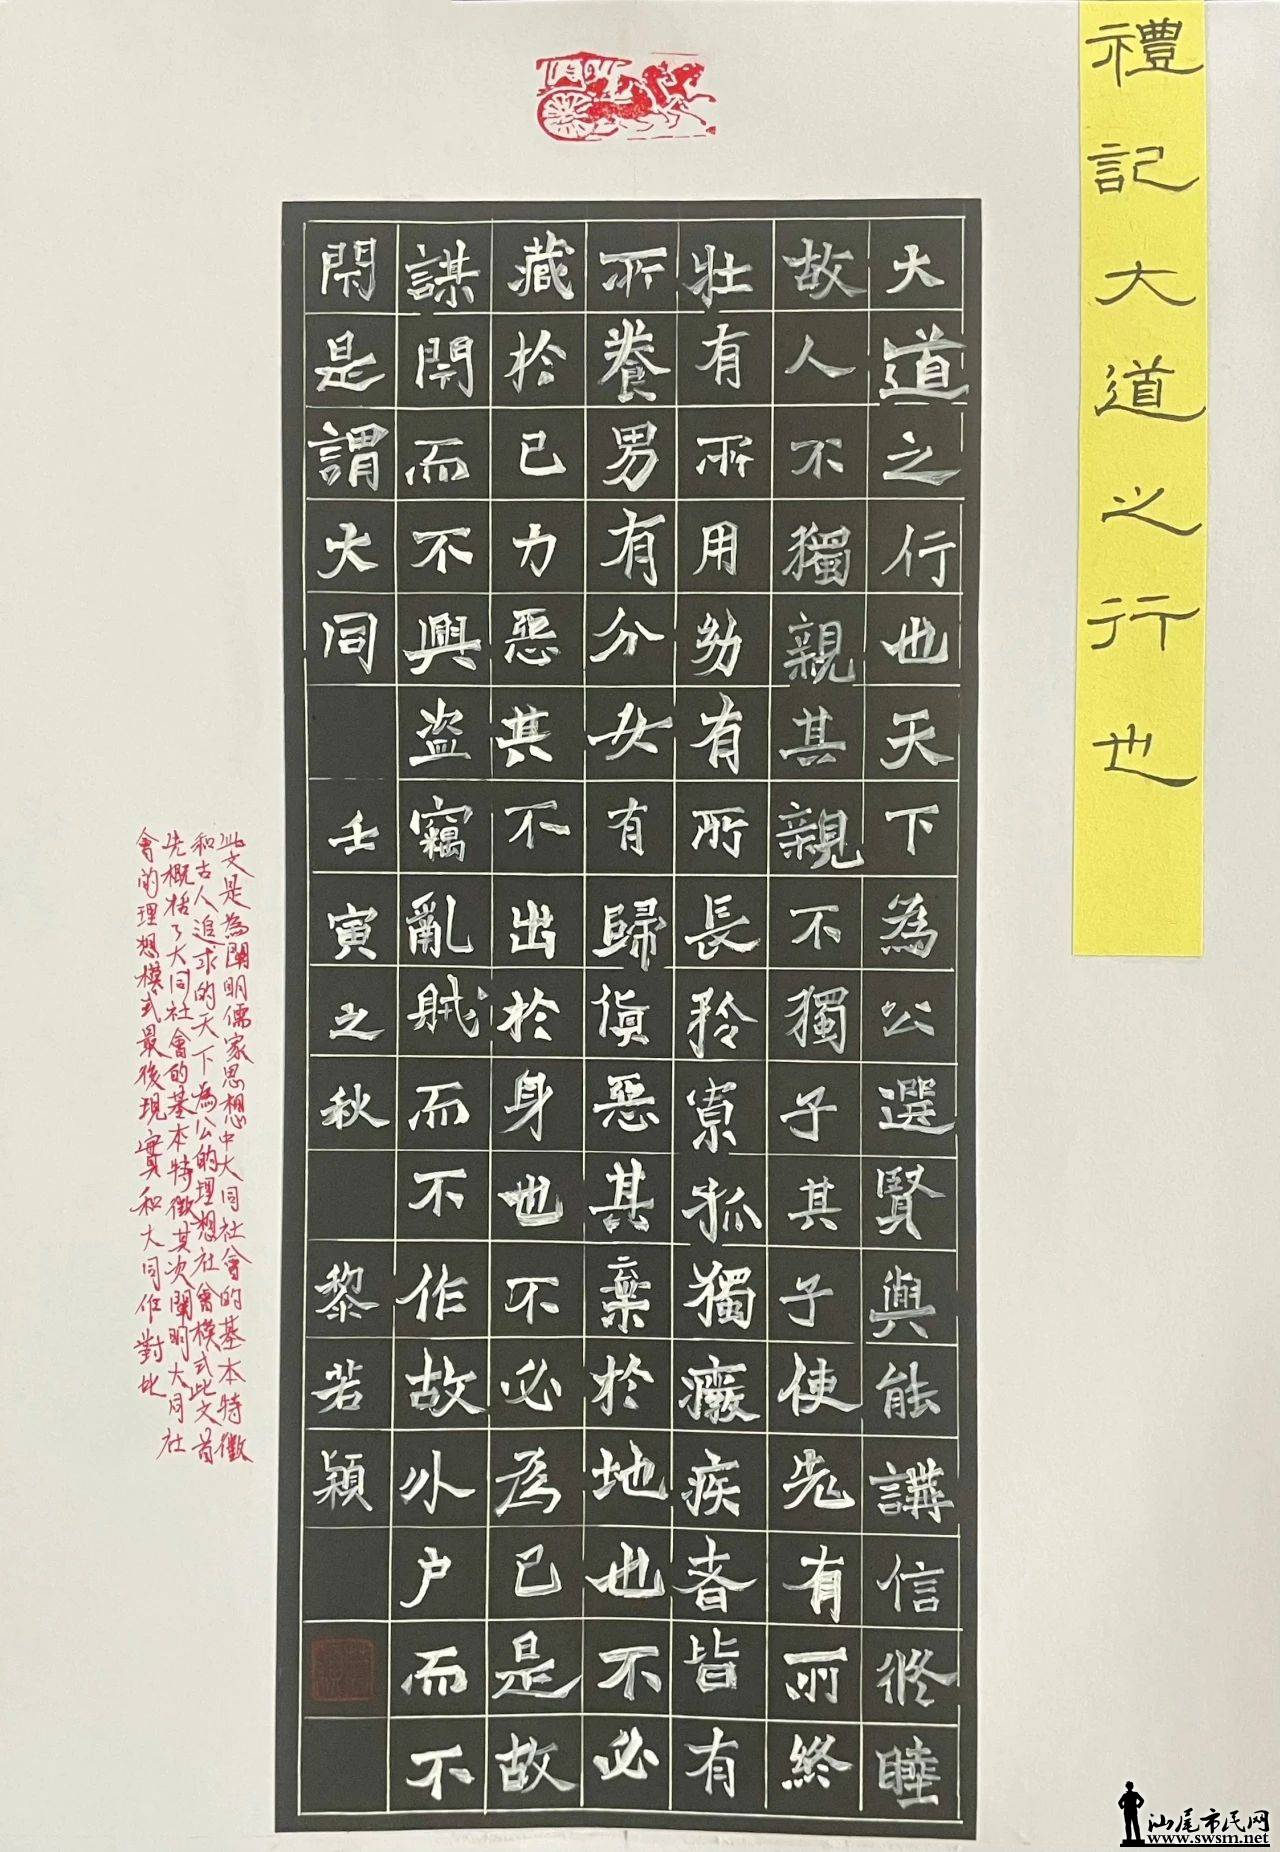 禮記大道之行也
大道之行也天下為公選賢與能講信修睦
故人不獨親其親不獨子其子使先有所終
壯有所用幼有所長矜寡孤獨癈疾者皆有
所養男有分女有歸貨惡其棄於地也不必
藏於己力惡其不出於身也不必為己是故
謀閉而不興盜竊亂賊而不作故外戶而不
閉是謂大同 壬寅之秋 黎若穎
此文是為闡明儒家思想中大同社會的基本特徵
和古人追求的天下為公的理想社會模式此文首
先概括了大同社會的基本特徵其次闡明大同社
會的理想模式最後現實和大同作對比
汕尾市民网
www.swsm.net